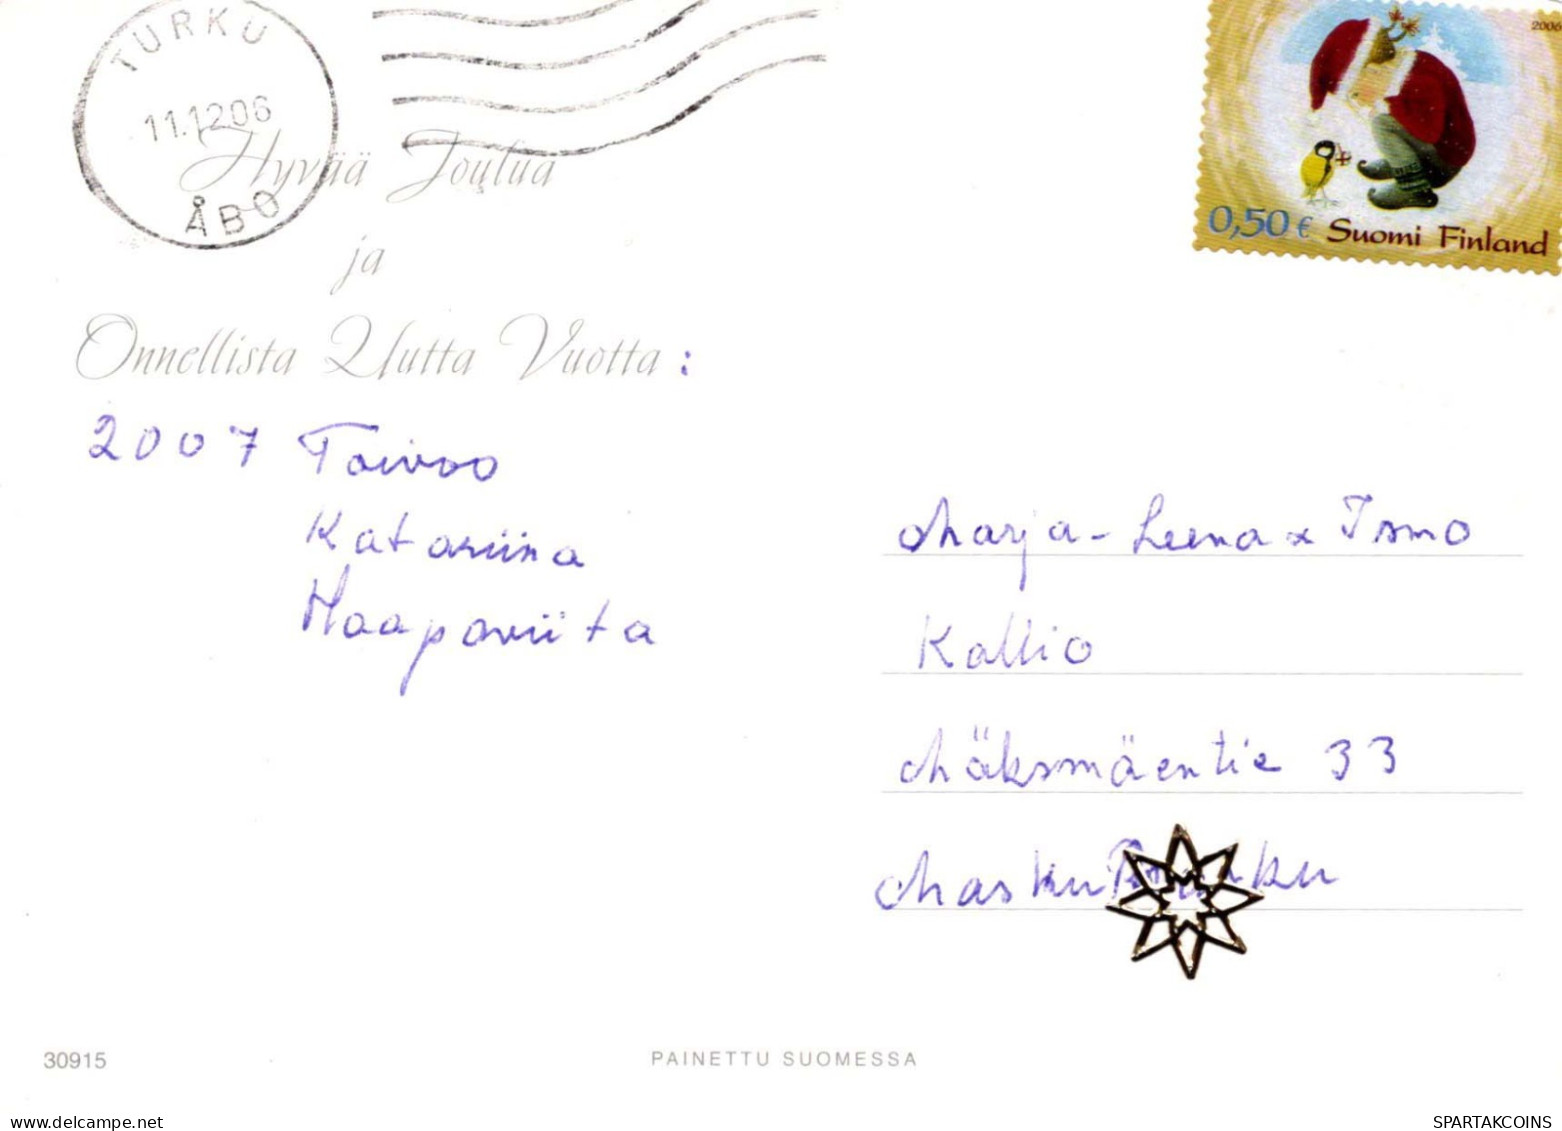 TURKU
11.12.06
ÅBO
2006
0,50 € Suomi Finland
Hyvää Joulua
ja
Onnellista Uutta Vuotta :
2007 Toivoo
Katariina
Haapaviita
Marja-Leena & Ismo
Kallio
Mäksmäentie 33
Masku
30915
PAINETTU SUOMESSA
www.delcampe.net
SPARTAKCOINS